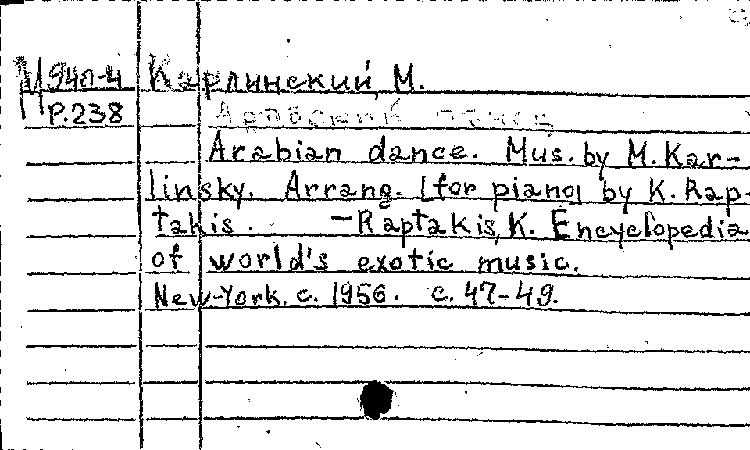 М 940-4 Карлинский, М.
Р.238 Арабский танец
Arabian dance. Mus. by M. Kar-
linsky. Arrang. [for piano] by K. Rap-
takis. – Raptakis, K. Encyclopedia
of world's exotic music.
New-York. c. 1956. c. 47-49.